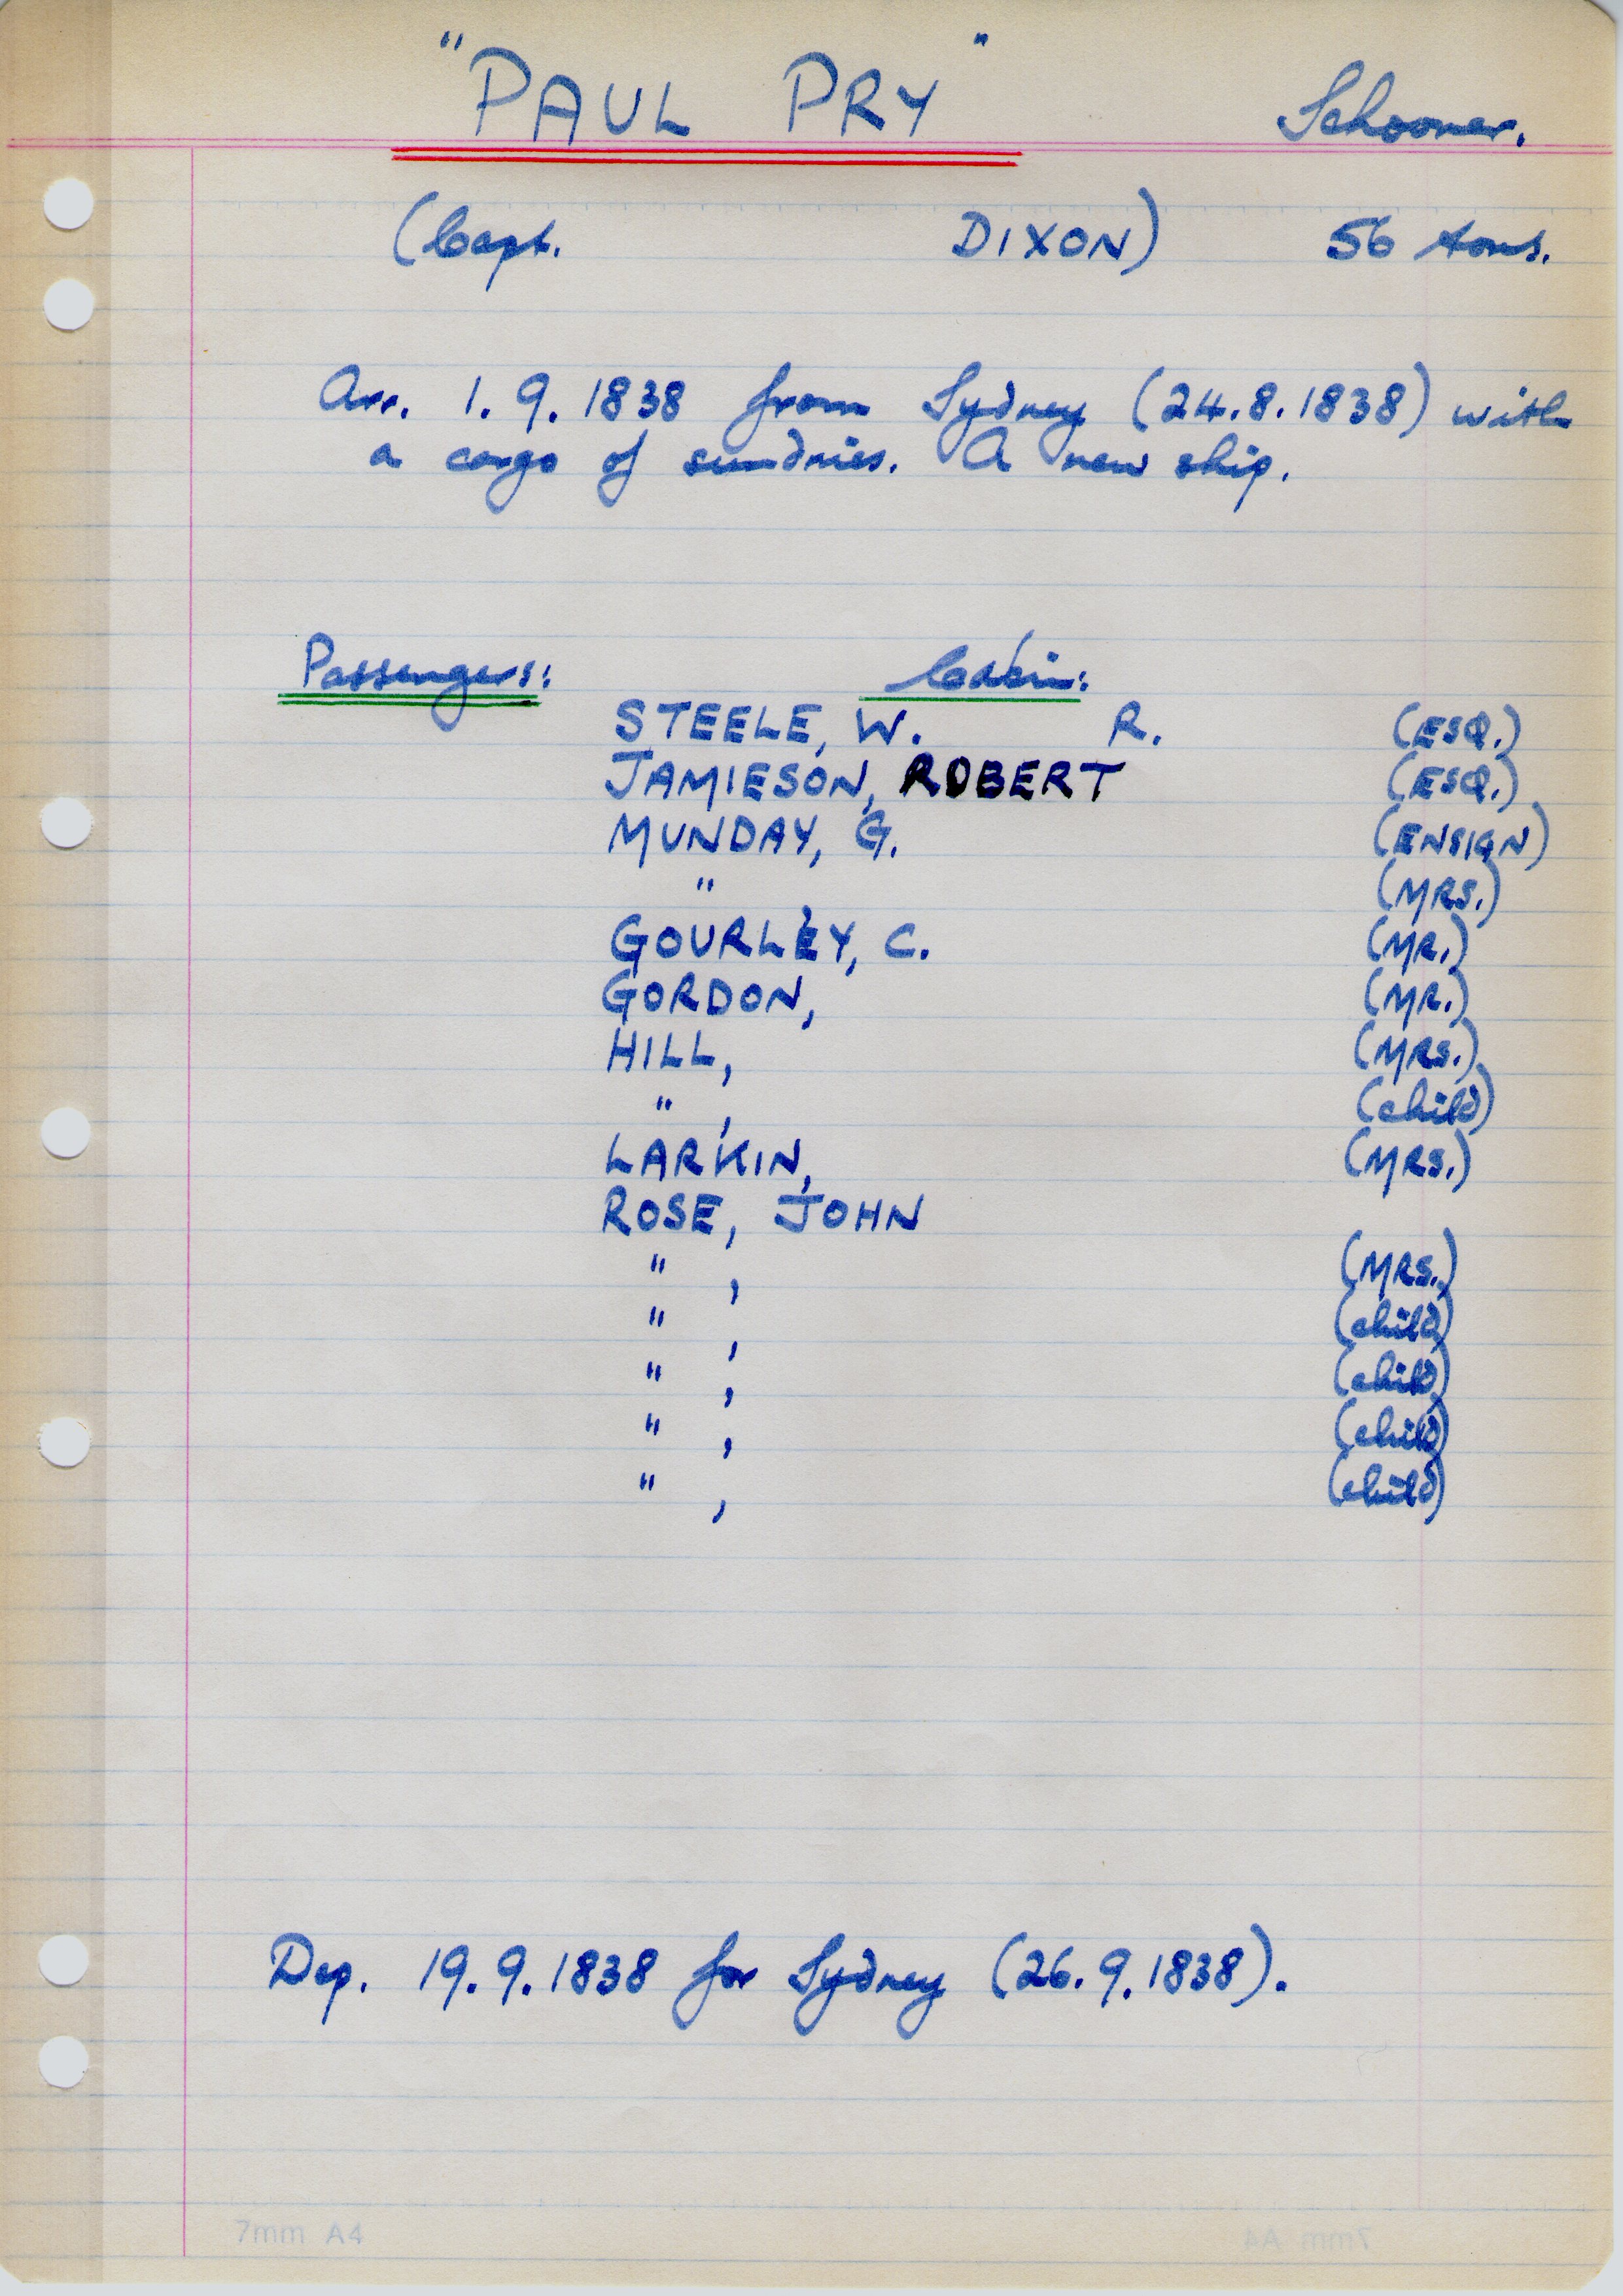 "PAUL PRY" Schooner.
(Capt. DIXON) 56 tons.
Arr. 1.9.1838 from Sydney (24.8.1838) with
a cargo of sundries. A new ship.
Passengers: Cabin:
STEELE, W. R. (ESQ.)
JAMIESON, ROBERT (ESQ.)
MUNDAY, G. (ENSIGN)
" , (MRS.)
GOURLEY, C. (MR.)
GORDON, (MR.)
HILL, (MRS.)
" , (child)
LARKIN, (MRS.)
ROSE, JOHN
" , (MRS.)
" , (child)
" , (child)
" , (child)
" , (child)
Dep. 19.9.1838 for Sydney (26.9.1838).
7mm A4 7mm A4